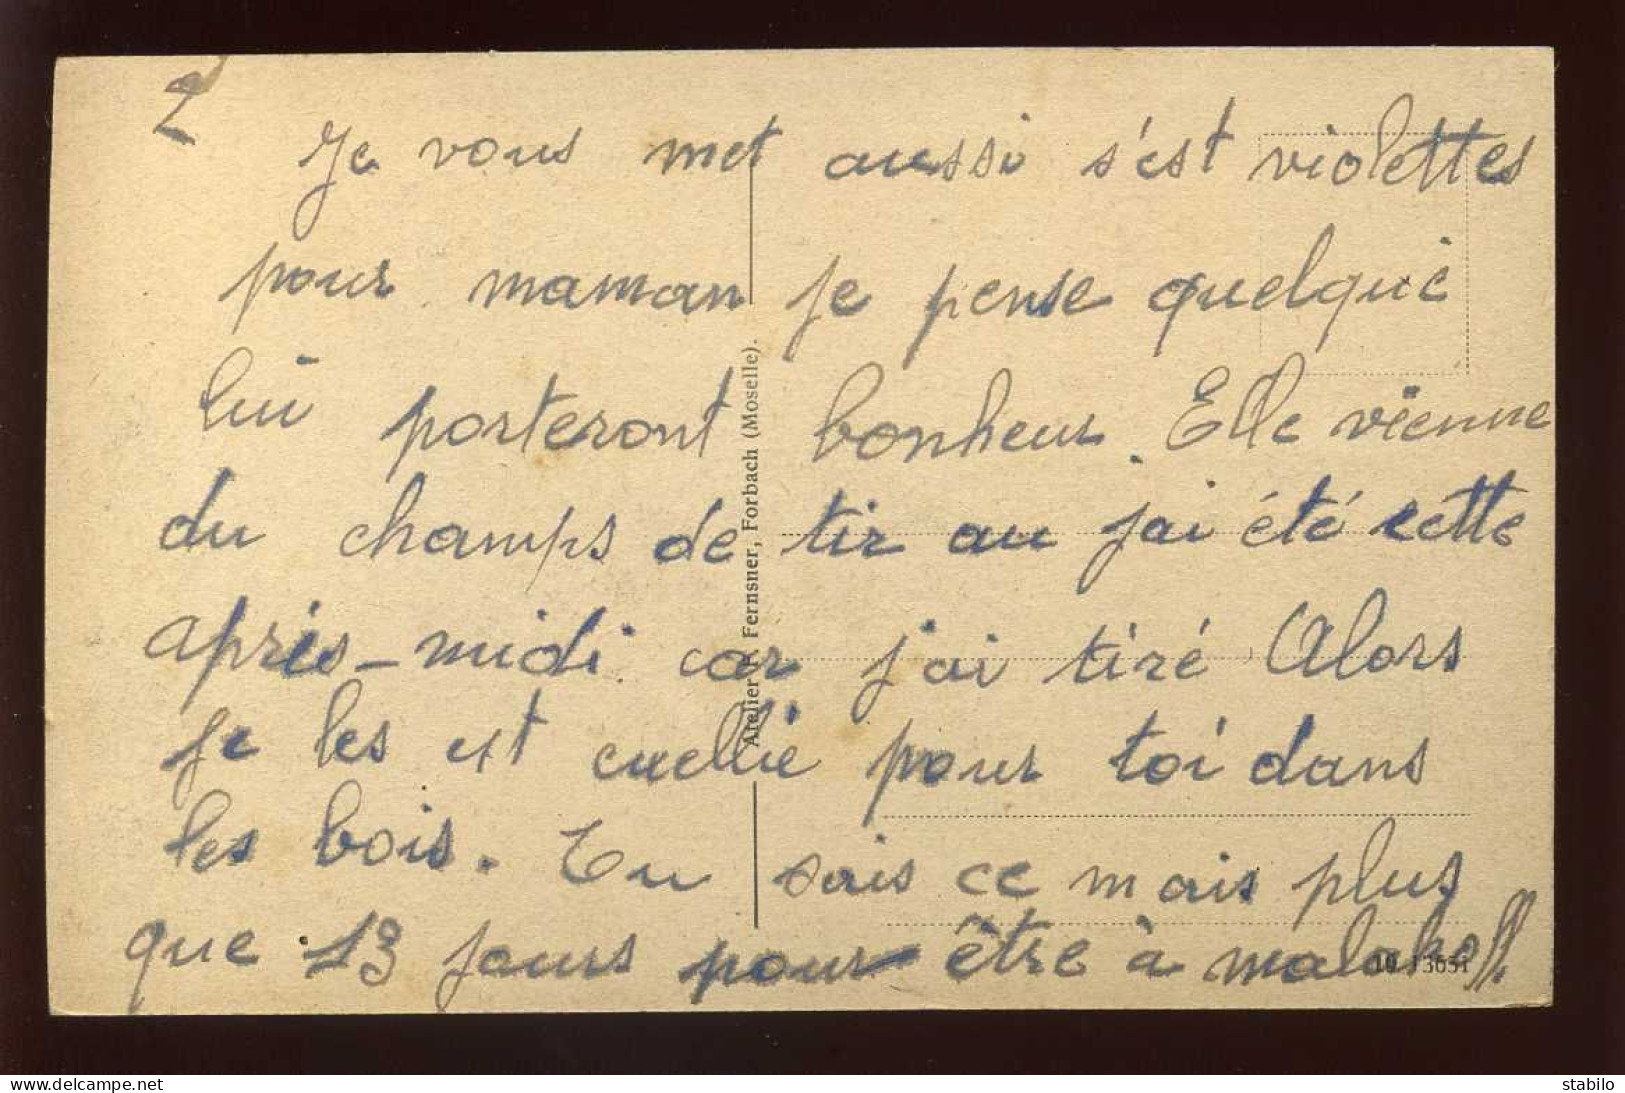 2
Je vous met aussi s'est violettes
pour maman je pense quelque
lui porteront bonheur. Elle vienne
du champs de tir au j'ai été cette
après-midi car j'ai tiré Alors
je les est cuellie pour toi dans
les bois. Tu sais ce mais plus
que 13 jours pour être à malakoff.
Atelier Fernsner, Forbach (Moselle).
10 13651
delcampe.net
stabilo